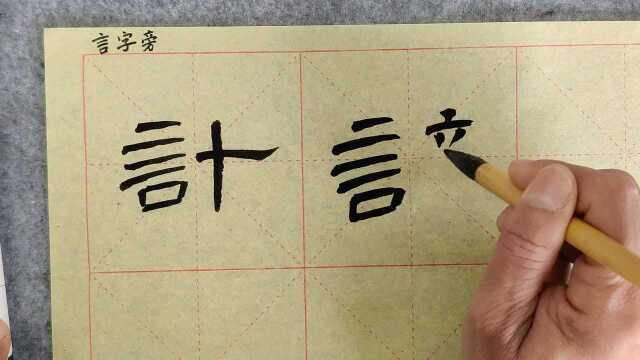 言字旁
計言